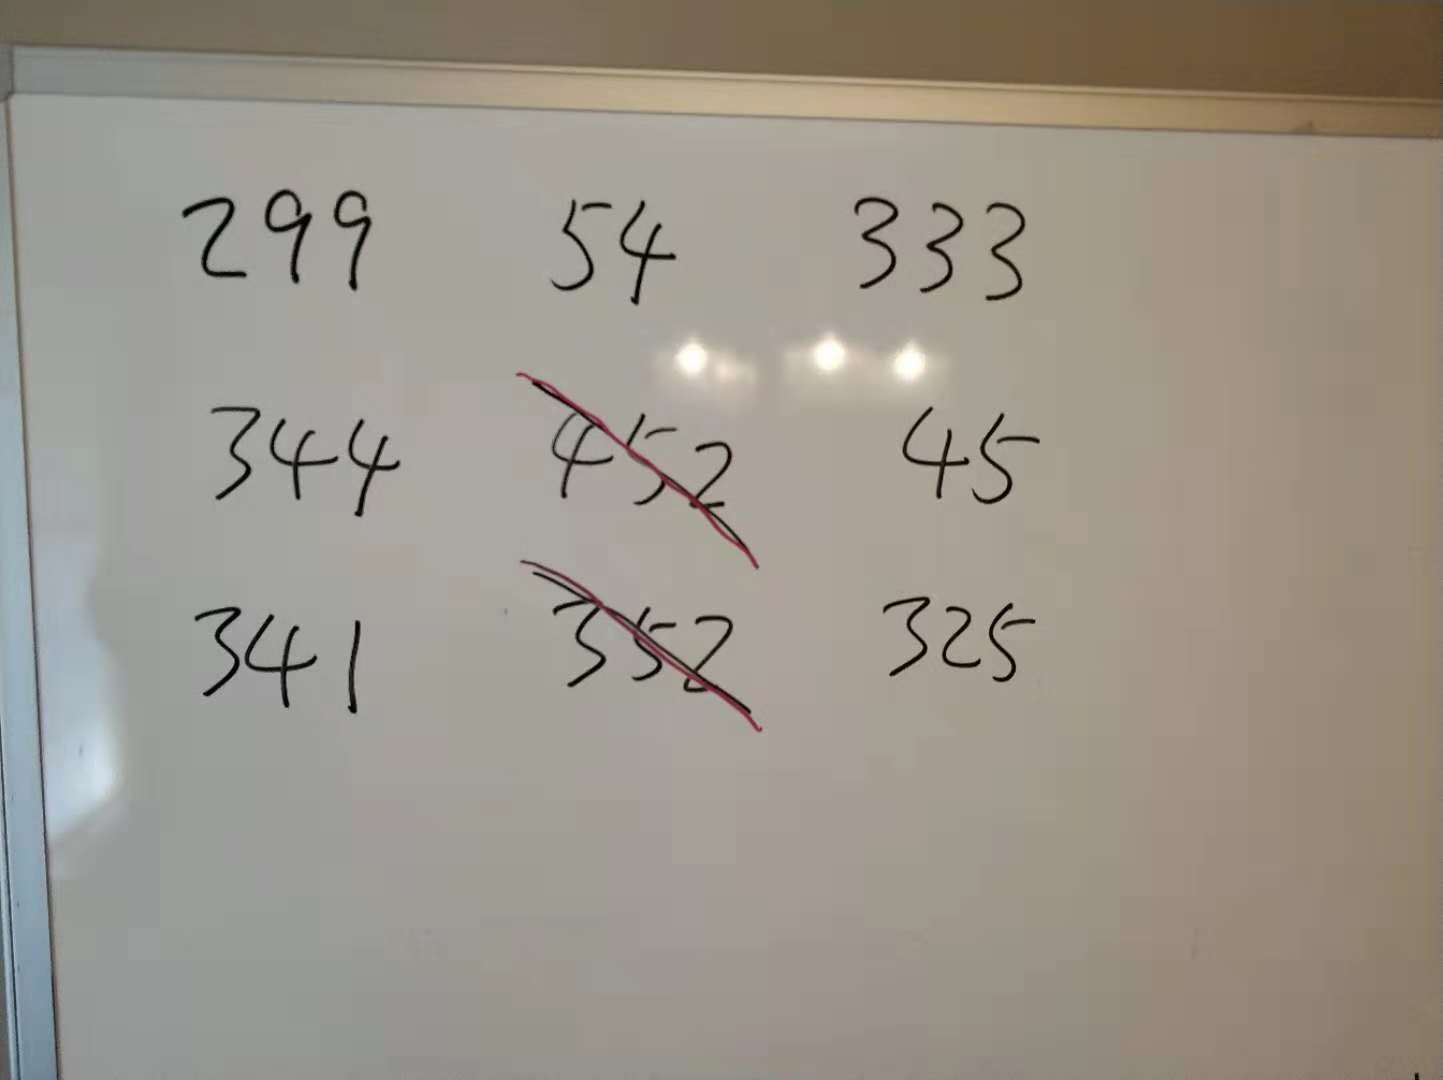 299 54 333
344 452 45
341 352 325